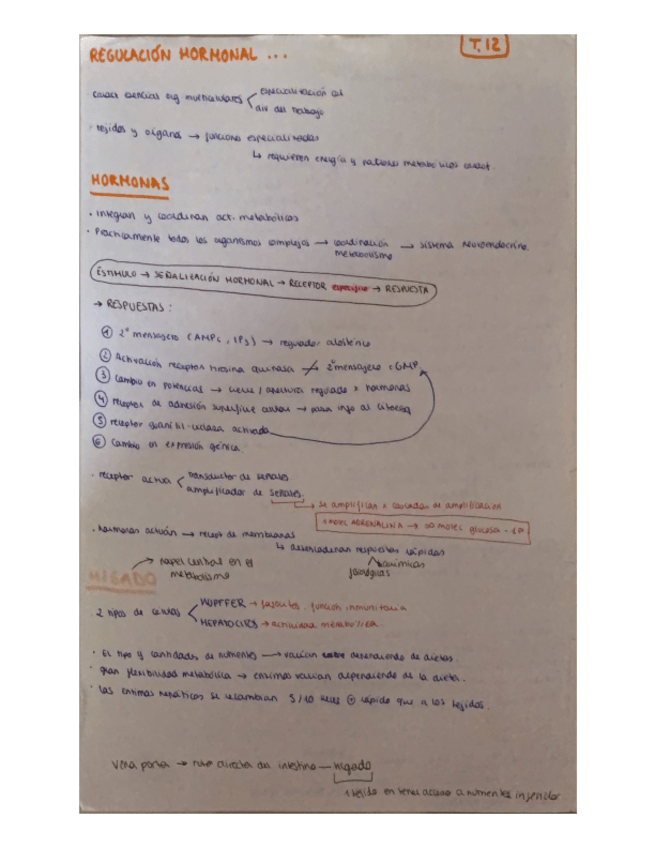 REGULACIÓN HORMONAL ...
T.12
caract esencias org multicelulares
especialización cel
div del trabajo
· tejidos y órganos → funciones especializadas
↳ requieren energía y patrones metabólicos caract.
HORMONAS
· integran y coordinan act. metabólicas
· Prácticamente todos los organismos complejos → coordinación metabolismo → sistema neuroendocrino.
ESTÍMULO → SEÑALIZACIÓN HORMONAL → RECEPTOR específico → RESPUESTA
→ RESPUESTAS:
① 2º mensajero (AMPc, IP3) → regulador alostérico
② Activación receptor tirosina quinasa 2º mensajero cGMP
③ cambio en potencias → cierre / apertura regulada x hormonas
④ receptor de adhesión superficie celular → pasa info al
⑤ receptor guanilil-ciclasa activada
⑥ Cambio en expresión génica.
· receptor actua
transductor de señales
amplificador de señales
→ se amplifican x cascadas de amplificación
1 molec ADRENALINA → ∞ molec glucosa - 1P
· hormonas actúan → recept de membranas
↳ desencadenan respuestas rápidas
químicas
→ papel central en el metabolismo
HIGADO
· 2 tipos de células
KUPFFER → fagocitos. función inmunitaria
HEPATOCITOS → actividad metabólica.
· El tipo y cantidades de nutrientes → varían dependiendo de dietas.
· gran flexibilidad metabólica → enzimas varían dependiendo de la dieta.
· las enzimas hepáticas se recambian 5/10 veces ⊕ rápido que a los tejidos.
Vena porta → ruta directa del intestino — hígado
1 tejido en tener acceso a nutrientes ingeridos